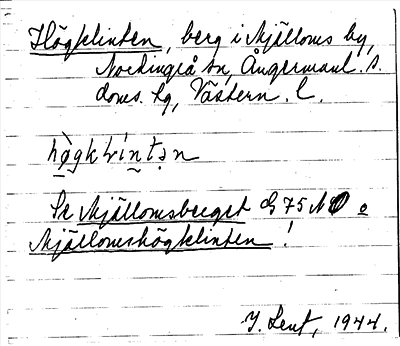 Högklinten, berg i Mjälloms by,
Nordingrå sn, Ångermanl. s.
doms. tg, Västern. l.
hø̀gkḷínt̬ən
Se Mjällomsberget G 75 NO o
Mjällomshögklinten!
Y. Lent, 1944.